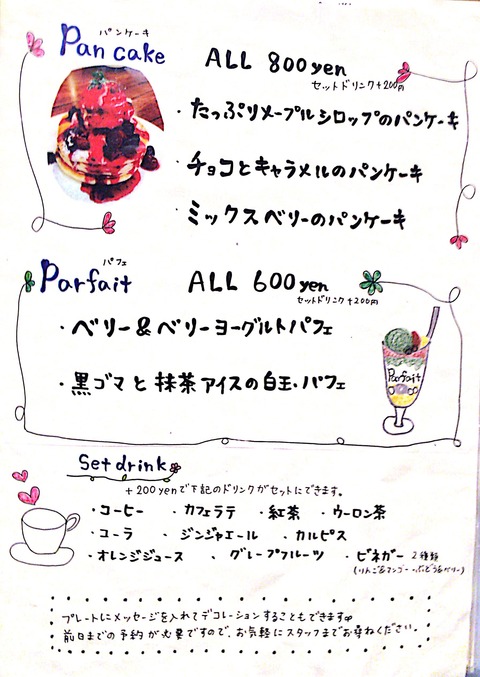 パンケーキ
Pancake
ALL 800yen
セットドリンク+200円
・たっぷりメープルシロップのパンケーキ
・チョコとキャラメルのパンケーキ
・ミックスベリーのパンケーキ
パフェ
Parfait
ALL 600yen
セットドリンク+200円
・ベリー&ベリーヨーグルトパフェ
・黒ゴマと抹茶アイスの白玉・パフェ
Parfait
Set drink
+200yenで下記のドリンクがセットにできます。
・コーヒー ・カフェラテ ・紅茶 ・ウーロン茶
・コーラ 、ジンジャエール ・カルピス
・オレンジジュース 、グレープフルーツ ・ビネガー 2種類
(りんご&マンゴー・ぶどう&ベリー)
プレートにメッセージを入れてデコレーションすることもできます
前日までの予約が必要ですので、お気軽にスタッフまでお尋ねください。